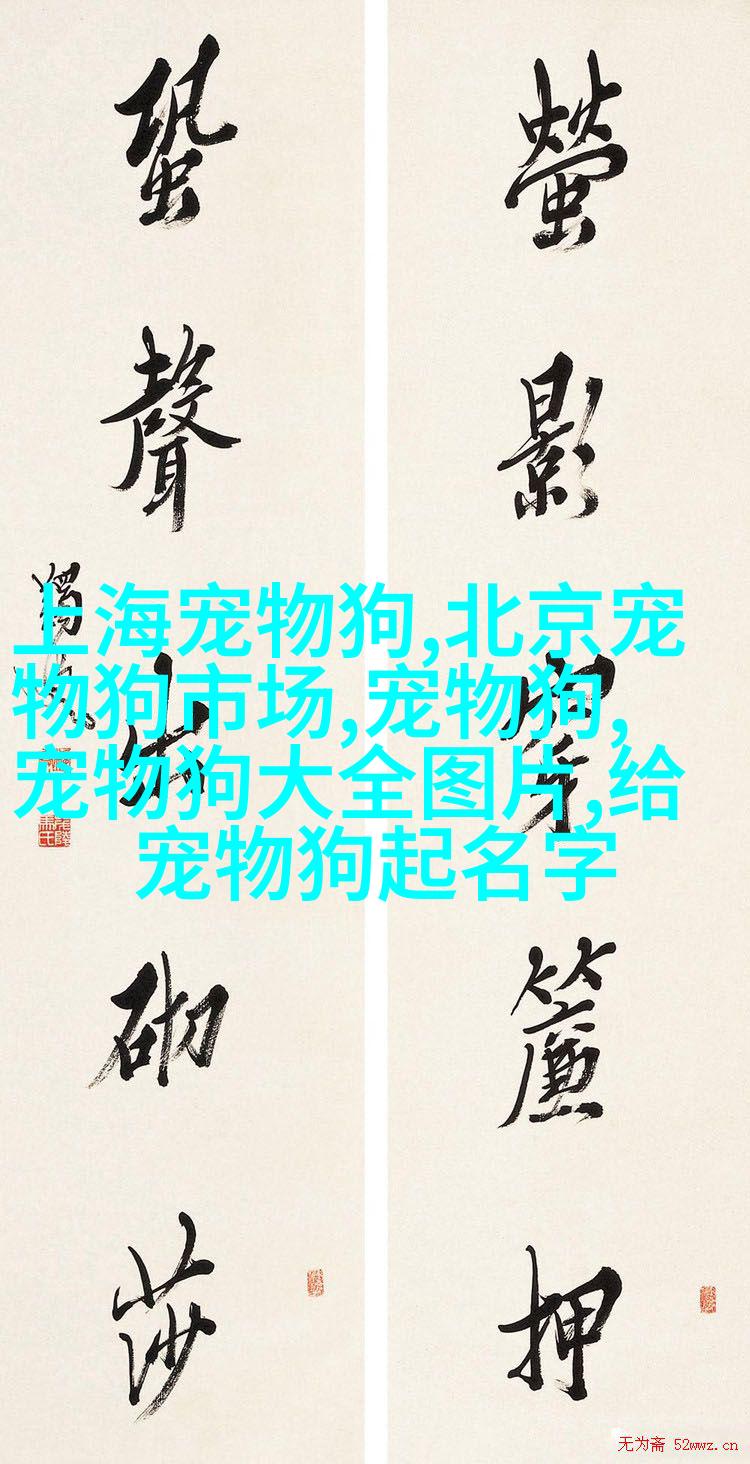 螢影穿簾押
蛩聲出砌莎
上海宠物狗,北京宠
物狗市场,宠物狗,
宠物狗大全图片,给
宠物狗起名字
无为斋 52wwz.cn